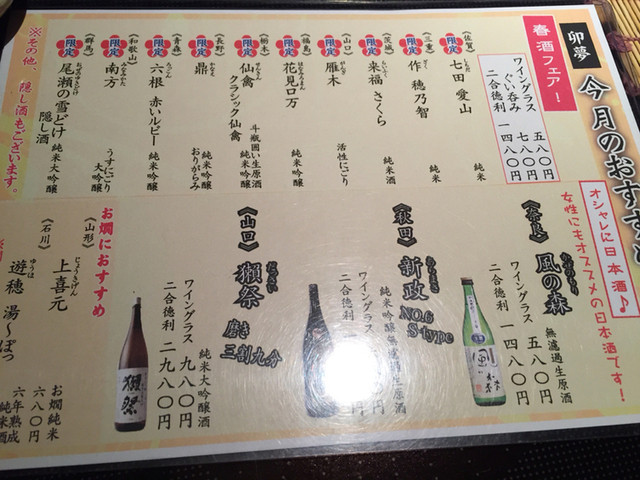 卯夢
今月のおすす
春酒フェア!
ワイングラス 五八〇円
ぐい呑み 七八〇円
二合徳利 一四八〇円
《佐賀》
限定
七田 愛山 純米
《三重》
限定
作 穂乃智 純米
《茨城》
限定
来福 さくら 純米酒
《山口》
限定
雁木 活性にごり
《福島》
限定
花見ロ万 純米吟醸
《栃木》
限定
仙禽
クラシック仙禽 斗瓶囲い生原酒
純米吟醸
《長野》
限定
鼎 純米吟醸
おりがらみ
《青森》
限定
六根 赤いルビー 純米吟醸
《和歌山》
限定
南方 うすにごり
大吟醸
《群馬》
限定
尾瀬の雪どけ 純米大吟醸
隠し酒
※その他、隠し酒もございます。
オシャレに日本酒♪
女性にもオススメの日本酒です!
《奈良》
風の森
無濾過生原酒
ワイングラス 五八〇円
二合徳利 一四八〇円
《秋田》
新政 NO.6 S type
純米吟醸無濾過生原酒
ワイングラス
二合徳利
《山口》
獺祭 磨き三割九分
純米大吟醸酒
ワイングラス 九八〇円
二合徳利 二九八〇円
獺祭
お燗におすすめ
《山形》
上喜元 お燗純米
六八〇円
《石川》
遊穂 湯〜ぽっ 六年熟成
純米酒